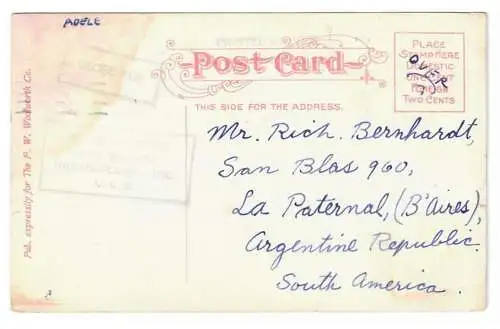 ADELE
Post Card
THIS SIDE FOR THE ADDRESS.
PLACE
STAMP HERE
DOMESTIC
ONE CENT
FOREIGN
TWO CENTS
OVER
Mr. Rich. Bernhardt,
San Blas 960,
La Paternal, (B'Aires),
Argentine Republic.
South America.
Pub. expressly for The F. W. Woolworth Co.